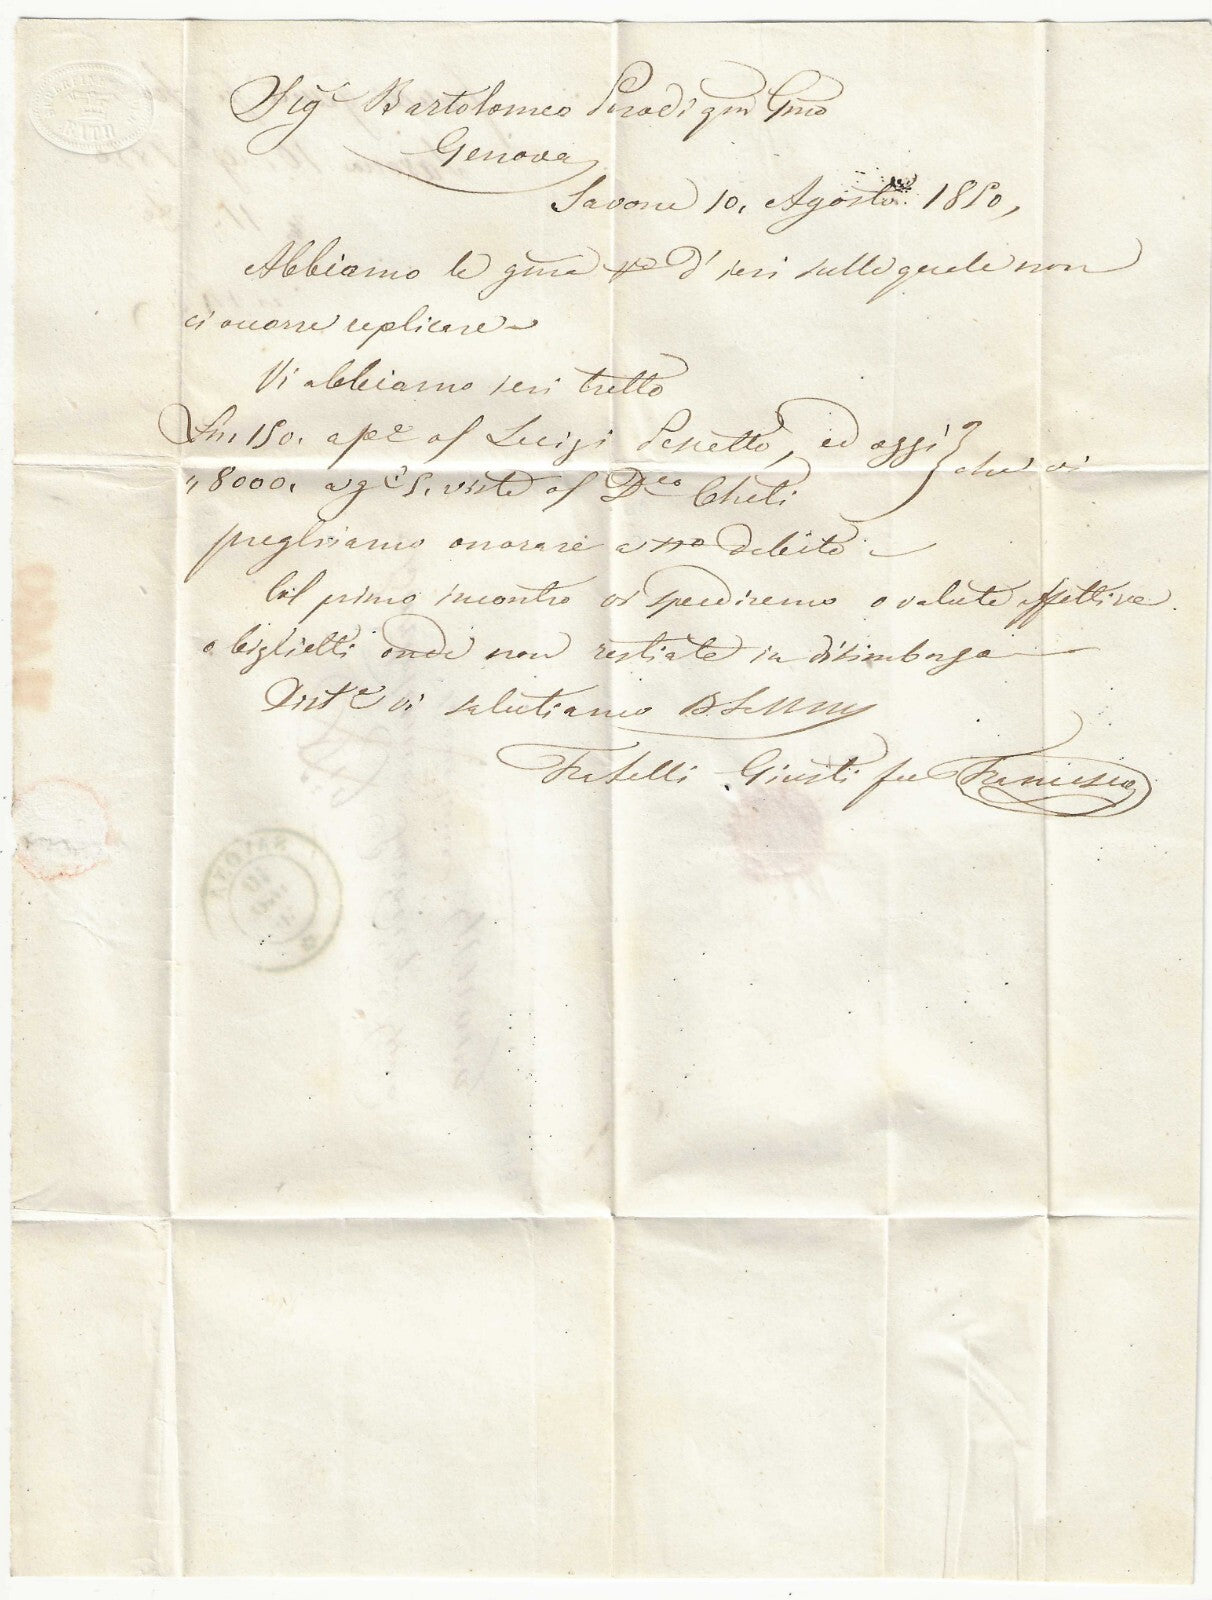 Sig.r Bartolomeo Parodi qm Gmo
Genova
Savona 10, Agosto 1850,
Abbiamo la gma vra d'ieri sulla quale non
ci occorre replicare
Vi abbiamo ieri tratto
Ln 150. a pe of Luigi , ed oggi } che vi
" 8000. a gi 5. vista of Dco Cheti
preghiamo onorare a nro debito
Col primo incontro vi spediremo o valute effettive
o biglietti onde non restiate in disimborso
Diste vi salutiamo
Fratelli Giusti fu Francesco
SAVONA